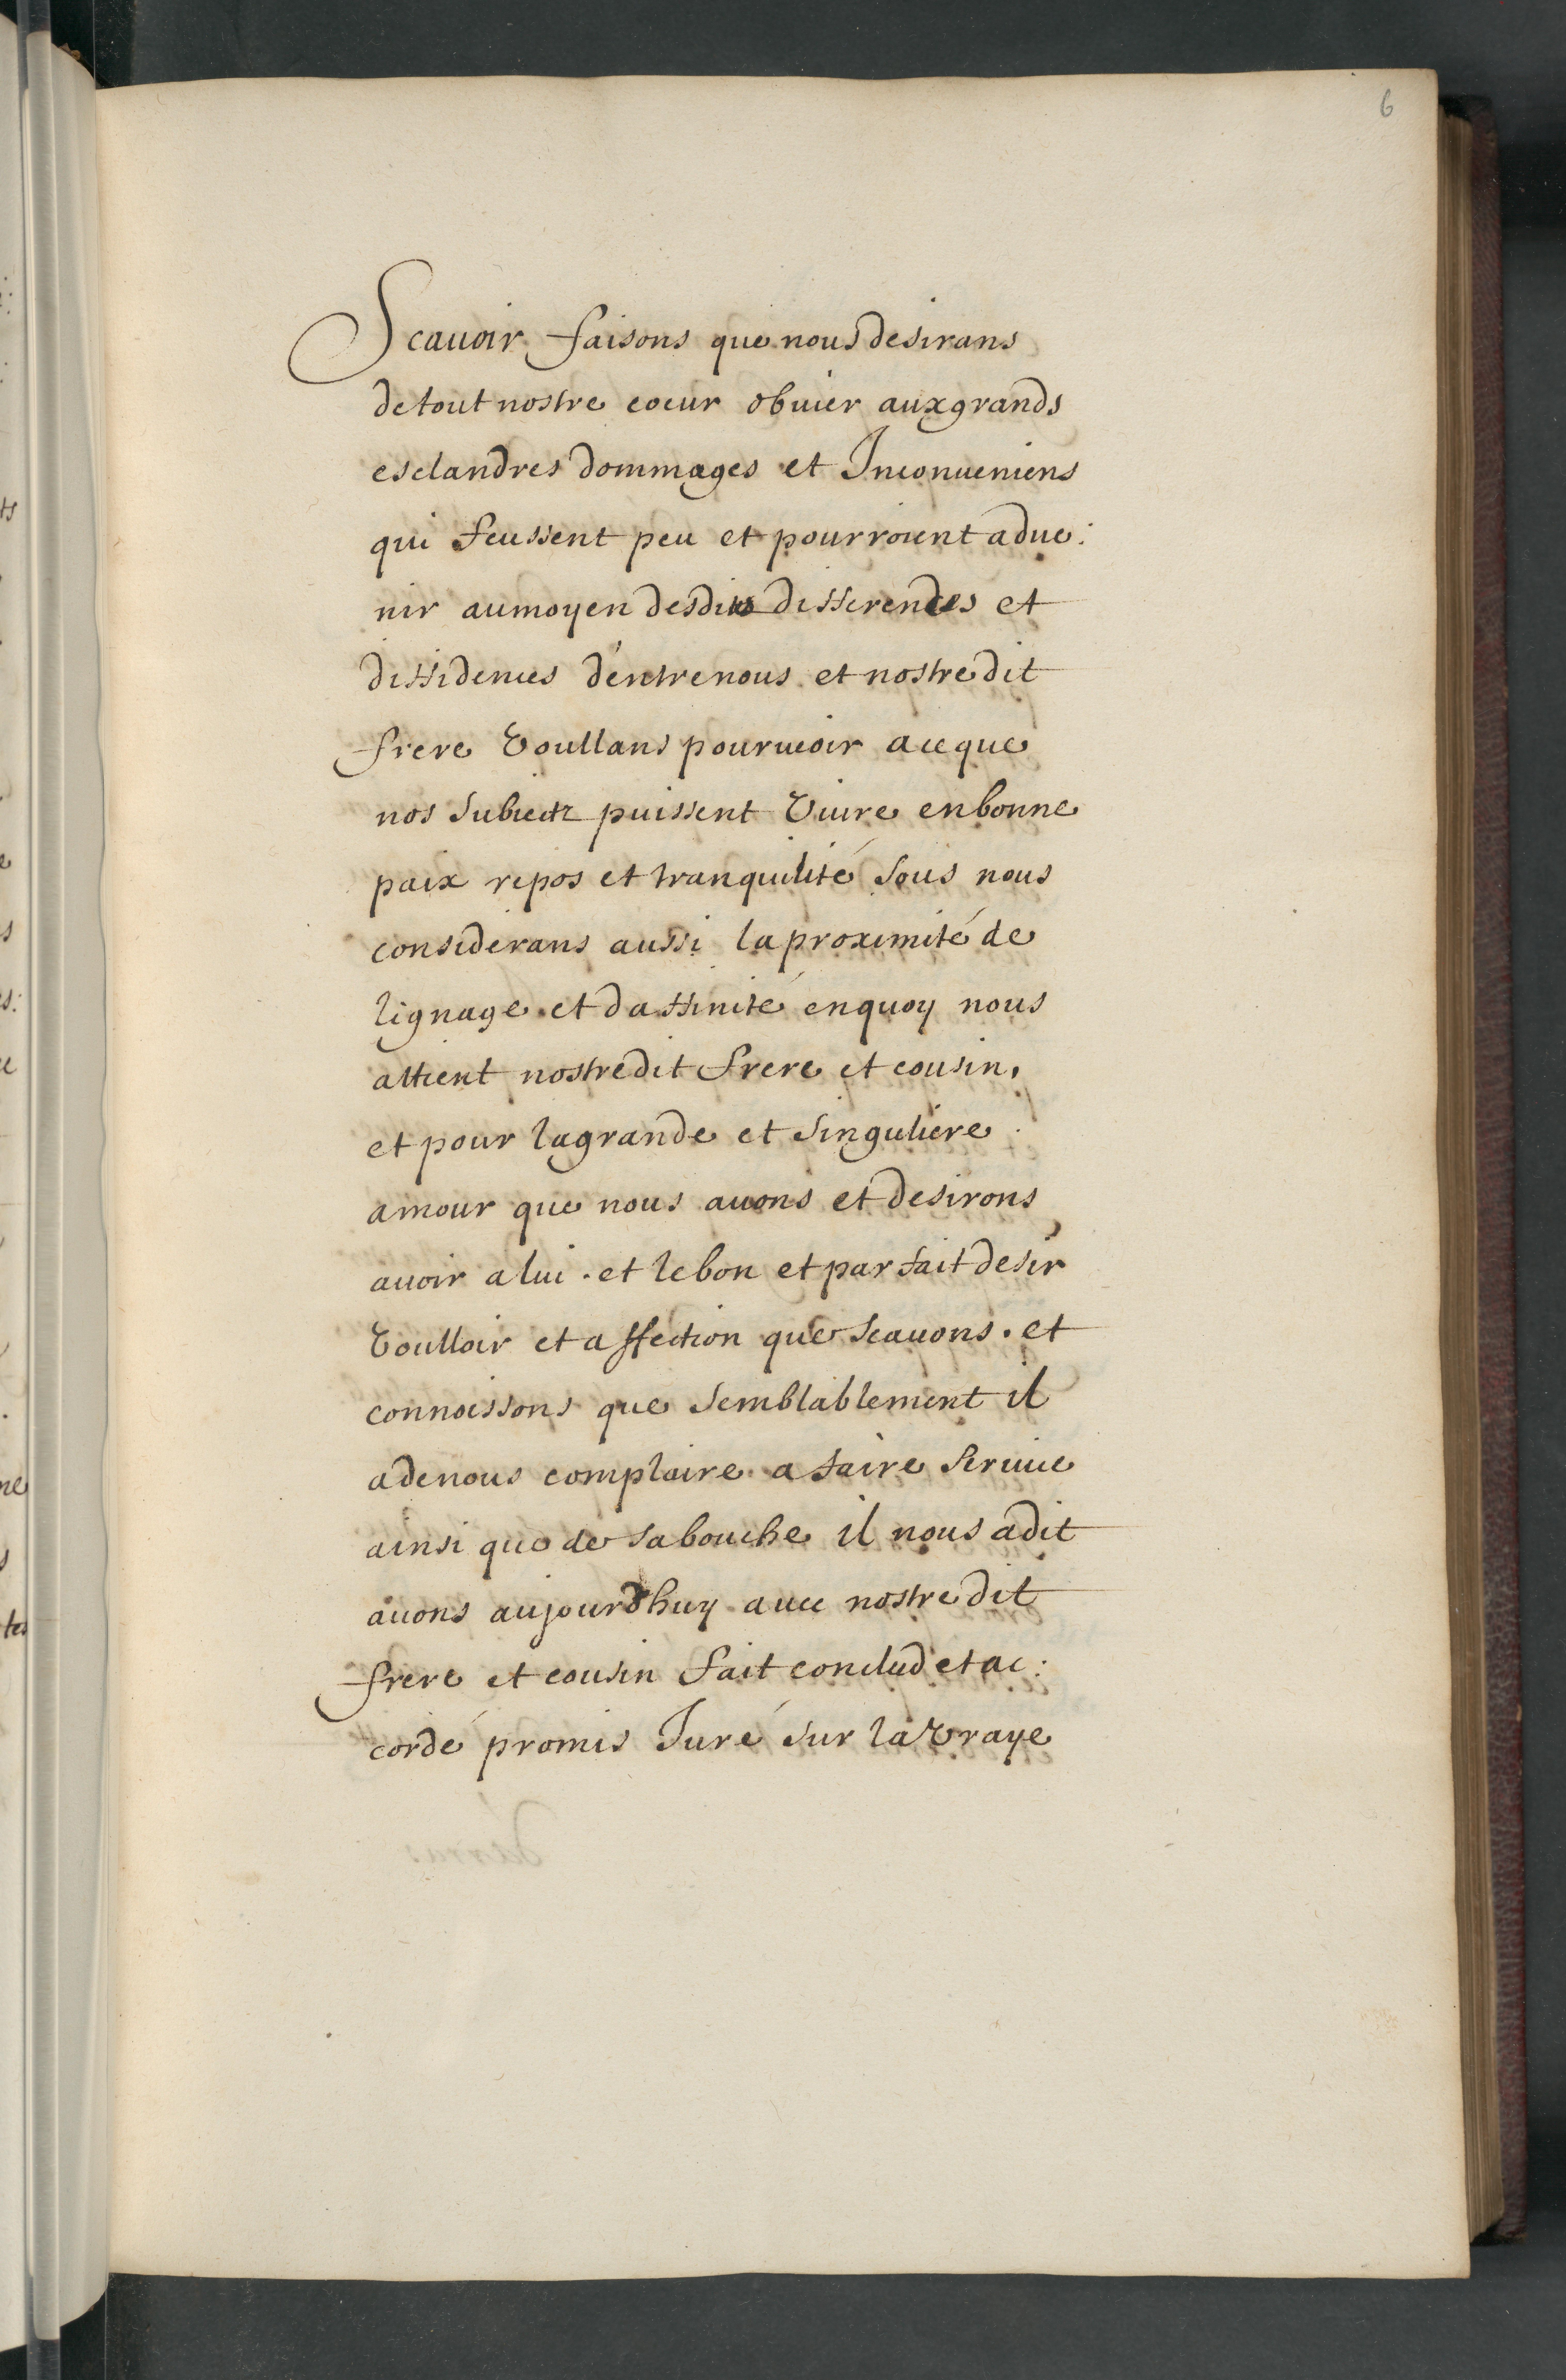 6
Scauoir faisons que nous desirans
de tout nostre coeur obuier aux grands
esclandres dommages et Inconueniens
qui feussent peu et pourroient adue:
nir au moyen desdits differendes et
diffidences d'entre nous et nostredit
frere voullans pouruoir a ce que
nos subiectz puissent viure en bonne
paix repos et tranquilité sous nous
considerans aussi la proximité de
lignage et d affinité en quoy nous
attient nostredit frere et cousin,
et pour la grande et singuliere
amour que nous auons et desirons
auoir a lui. et le bon et parfait desir
voulloir et affection que scauons. et
connoissons que semblablement il
a de nous complaire a faire seruice
ainsi que de sa bouche il nous a dit
auons aujourdhuy auec nostredit
frere et cousin fait conclud et ac:
cordé promis Juré sur la vraye